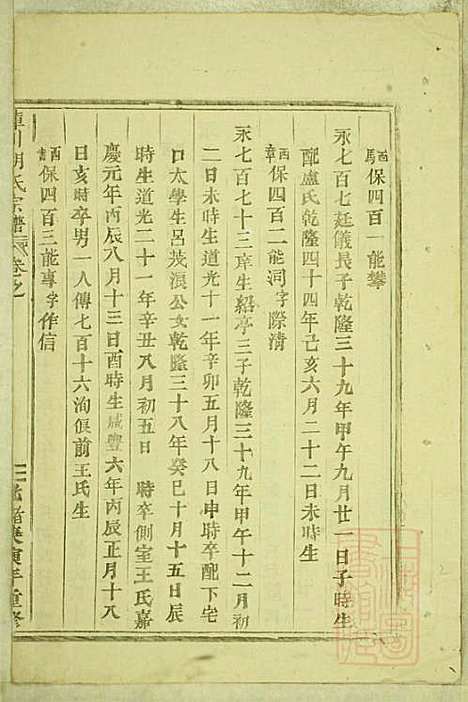 酉騐保四百一能攀
永七百七廷儀長子乾隆三十九年甲午九月廿一日子時生
配盧氏乾隆四十四年己亥六月二十二日未時生
酉章保四百二能洞字際清
永七百七十三庠生紹亭三子乾隆三十九年甲午十二月初
二日未時生道光十一年辛卯五月十八日申時卒配下宅
口太學生呂茂浪公女乾隆三十八年癸巳十月十五日辰
時生道光二十一年辛丑八月初五日 時卒側室王氏嘉
慶元年丙辰八月十三日酉時生咸豐六年丙辰正月十八
日亥時卒男一人傳七百十六洵偃前王氏生
酉保四百三能專字作信
川胡氏宗譜 卷之
庚寅年重修